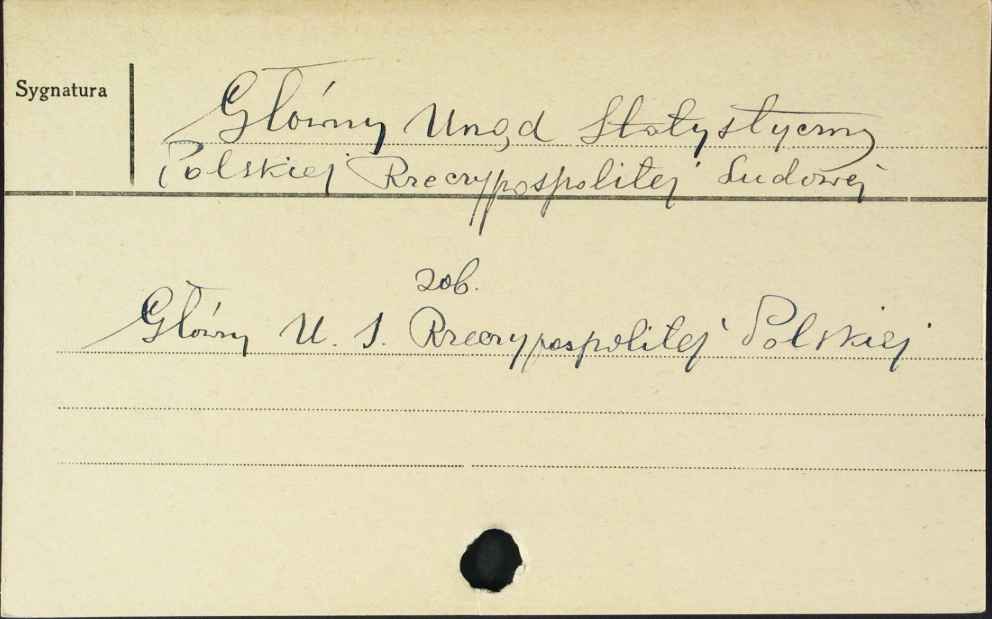 Sygnatura
Główny Urząd Statystyczny
Polskiej Rzeczypospolitej Ludowej
zob.
Główny U. S. Rzeczypospolitej Polskiej